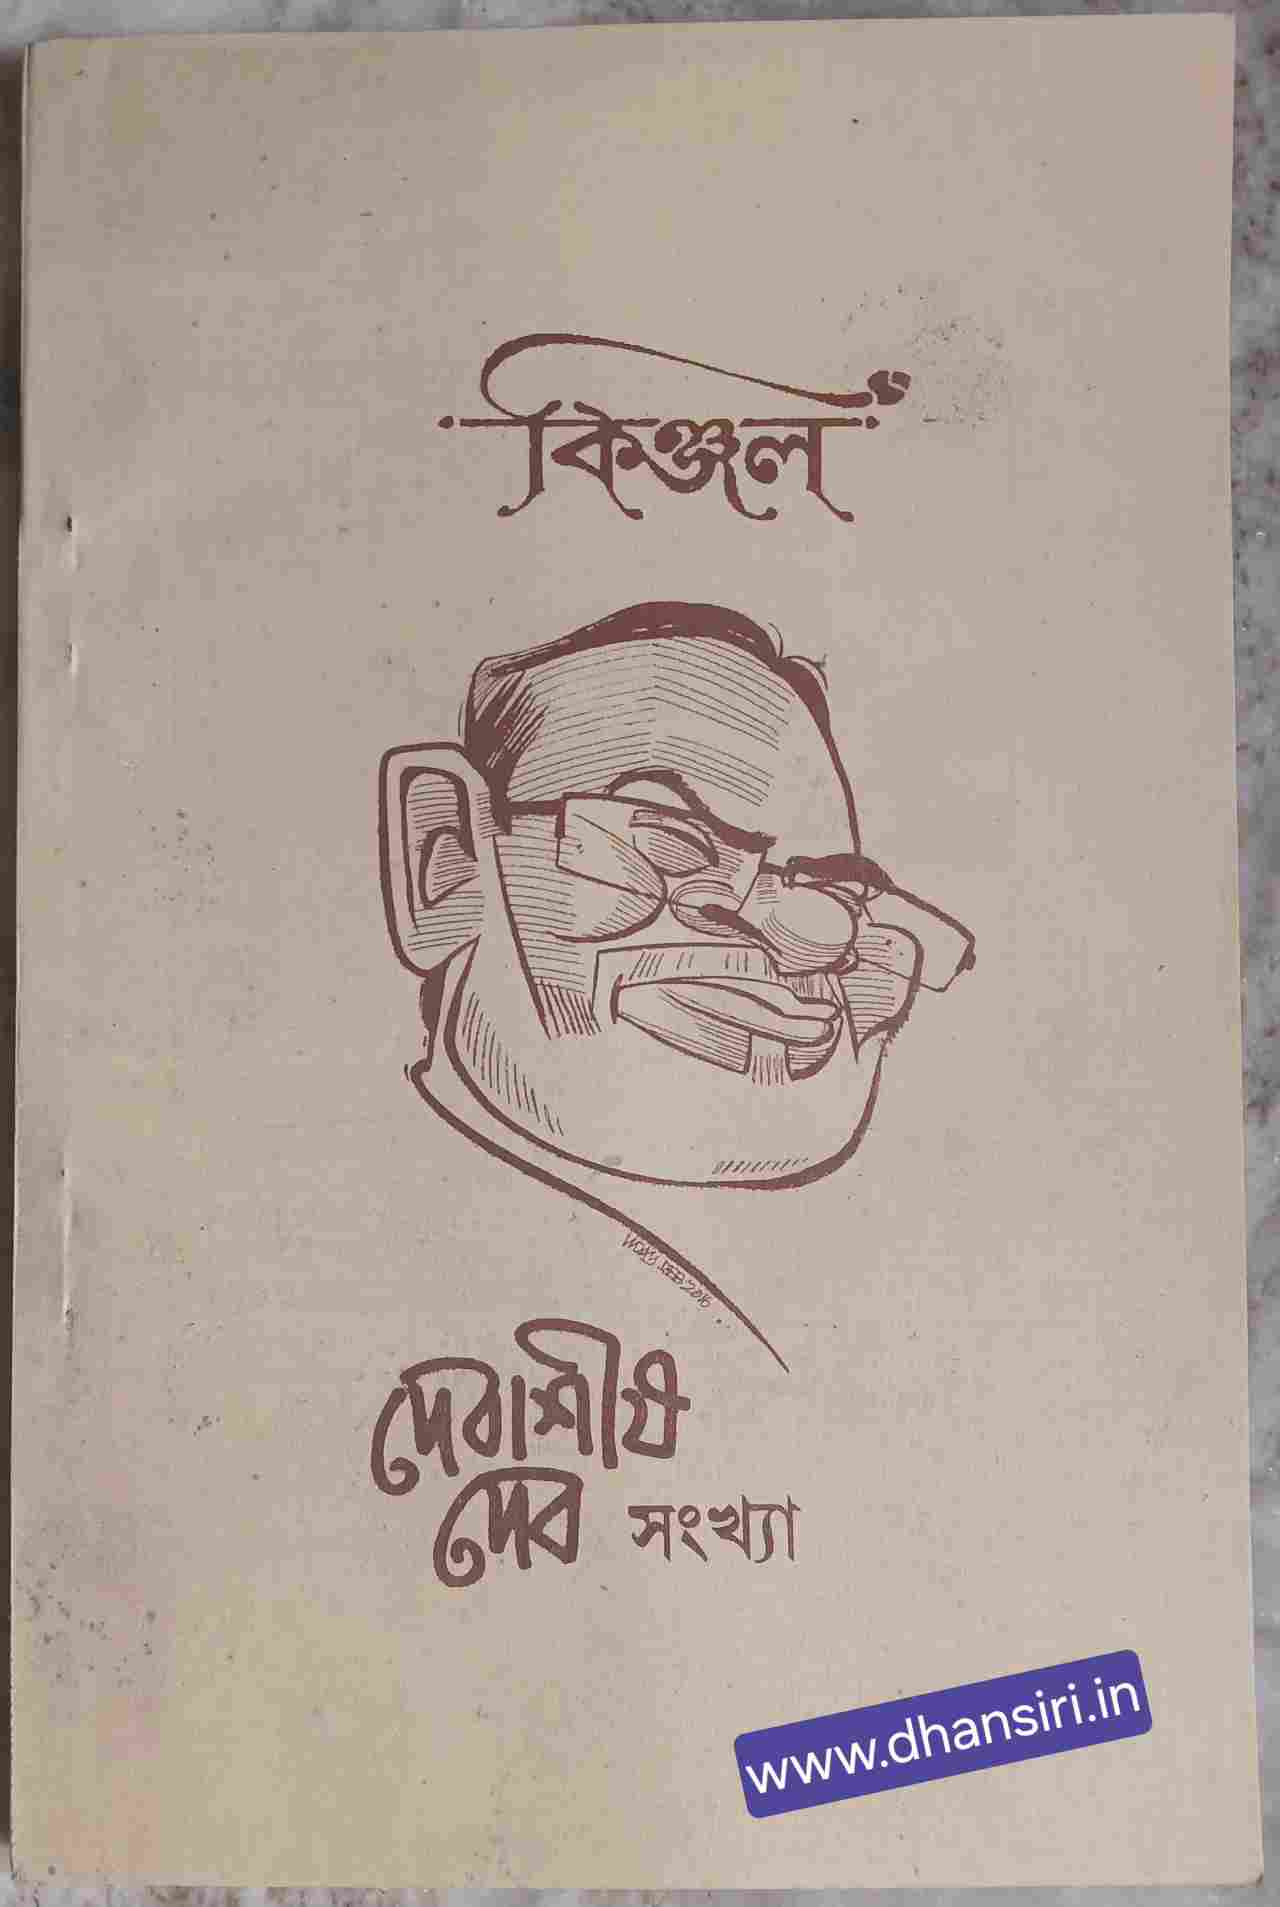 কিঞ্জল
দেবাশীষ
দেব সংখ্যা
www.dhansiri.in